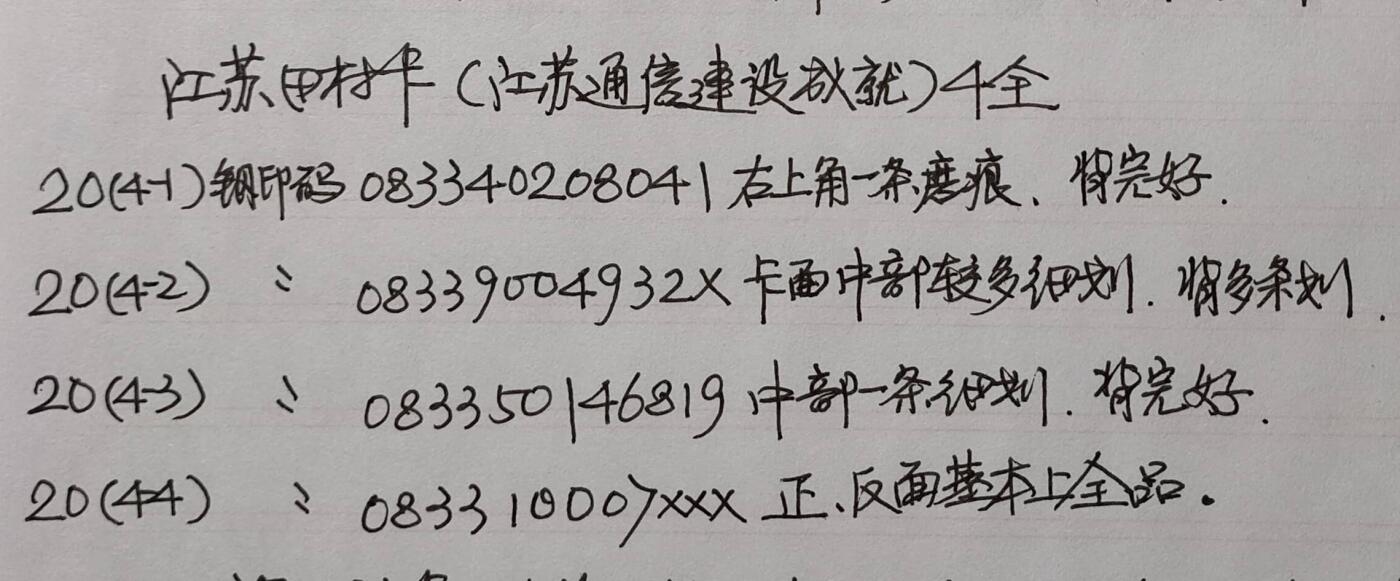 江苏田村卡(江苏通信建设成就)4全
20(4-1)钢印码 083340208041 右上角一条磨痕、背完好.
20(4-2) 〃 08339004932X 卡面中部较多细划.背多条划.
20(4-3) 〃 083350146819 中部一条细划.背完好.
20(4-4) 〃 083310007XXX 正、反面基本上全品。